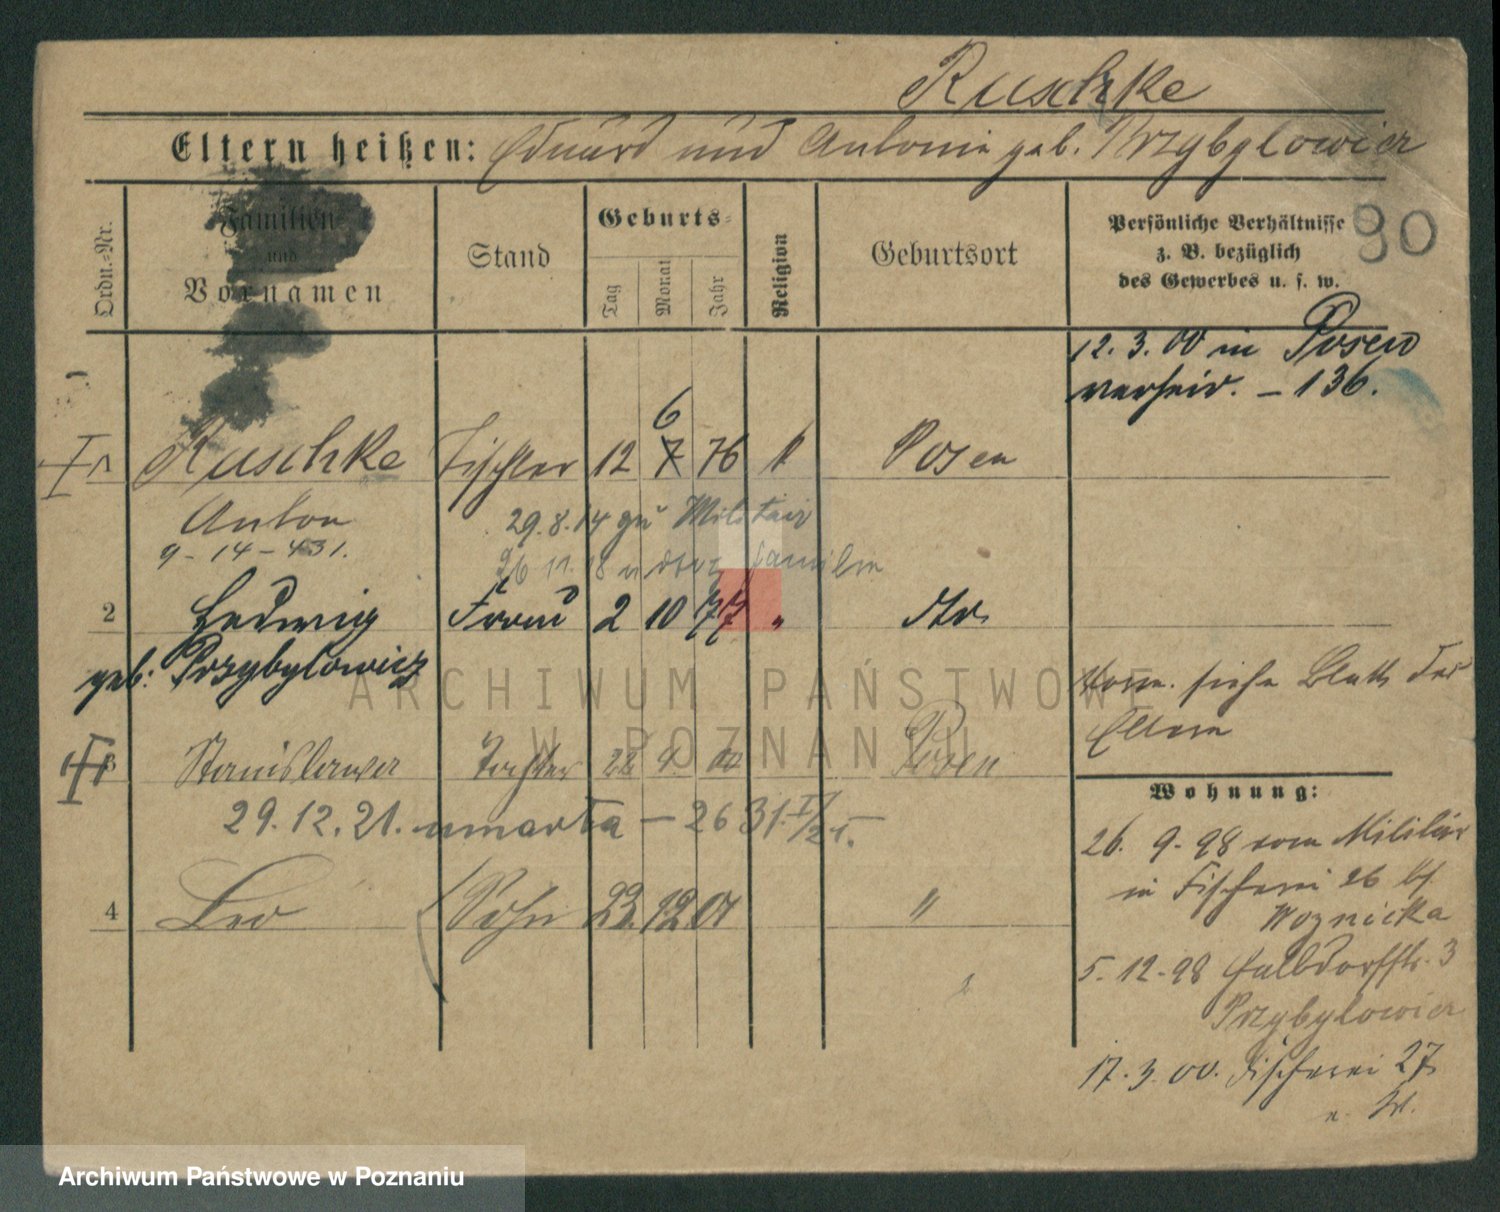 Ruschke
Eltern heißen: Eduard und Antonie geb. Przybylowicz
Ordn.-Nr.
Familien-
und
Vornamen
Stand
Geburts-
Tag
Monat
Jahr
Religion
Geburtsort
Persönliche Verhältnisse
z. B. bezüglich
des Gewerbes u. s. w.
90
12. 3. 00 in Posen
verheir. - 136.
6
1 Ruschke Tischler 12 7 76 k Posen
Anton
29.8.14 zu Militair
9-14-431.
26 11. 18 Familie
2 Hedwig Frau 2 10 77 " do
geb. Przybylowicz
Vorm. siehe Blatt der
Eltern
3 Stanislawa Tochter 22 4. 00 Posen
29.12.21. umarła - 26 31.
4 Leo Sohn 23. 12 04 "
Wohnung:
26. 9. 98 vom Militär
in Fischerei 26 bei
Woznicka
5. 12. 98 Halbdorfstr. 3
Przybylowicz
17. 3. 00. Fischerei 27
ARCHIWUM PAŃSTWOWE
W POZNANIU
Archiwum Państwowe w Poznaniu